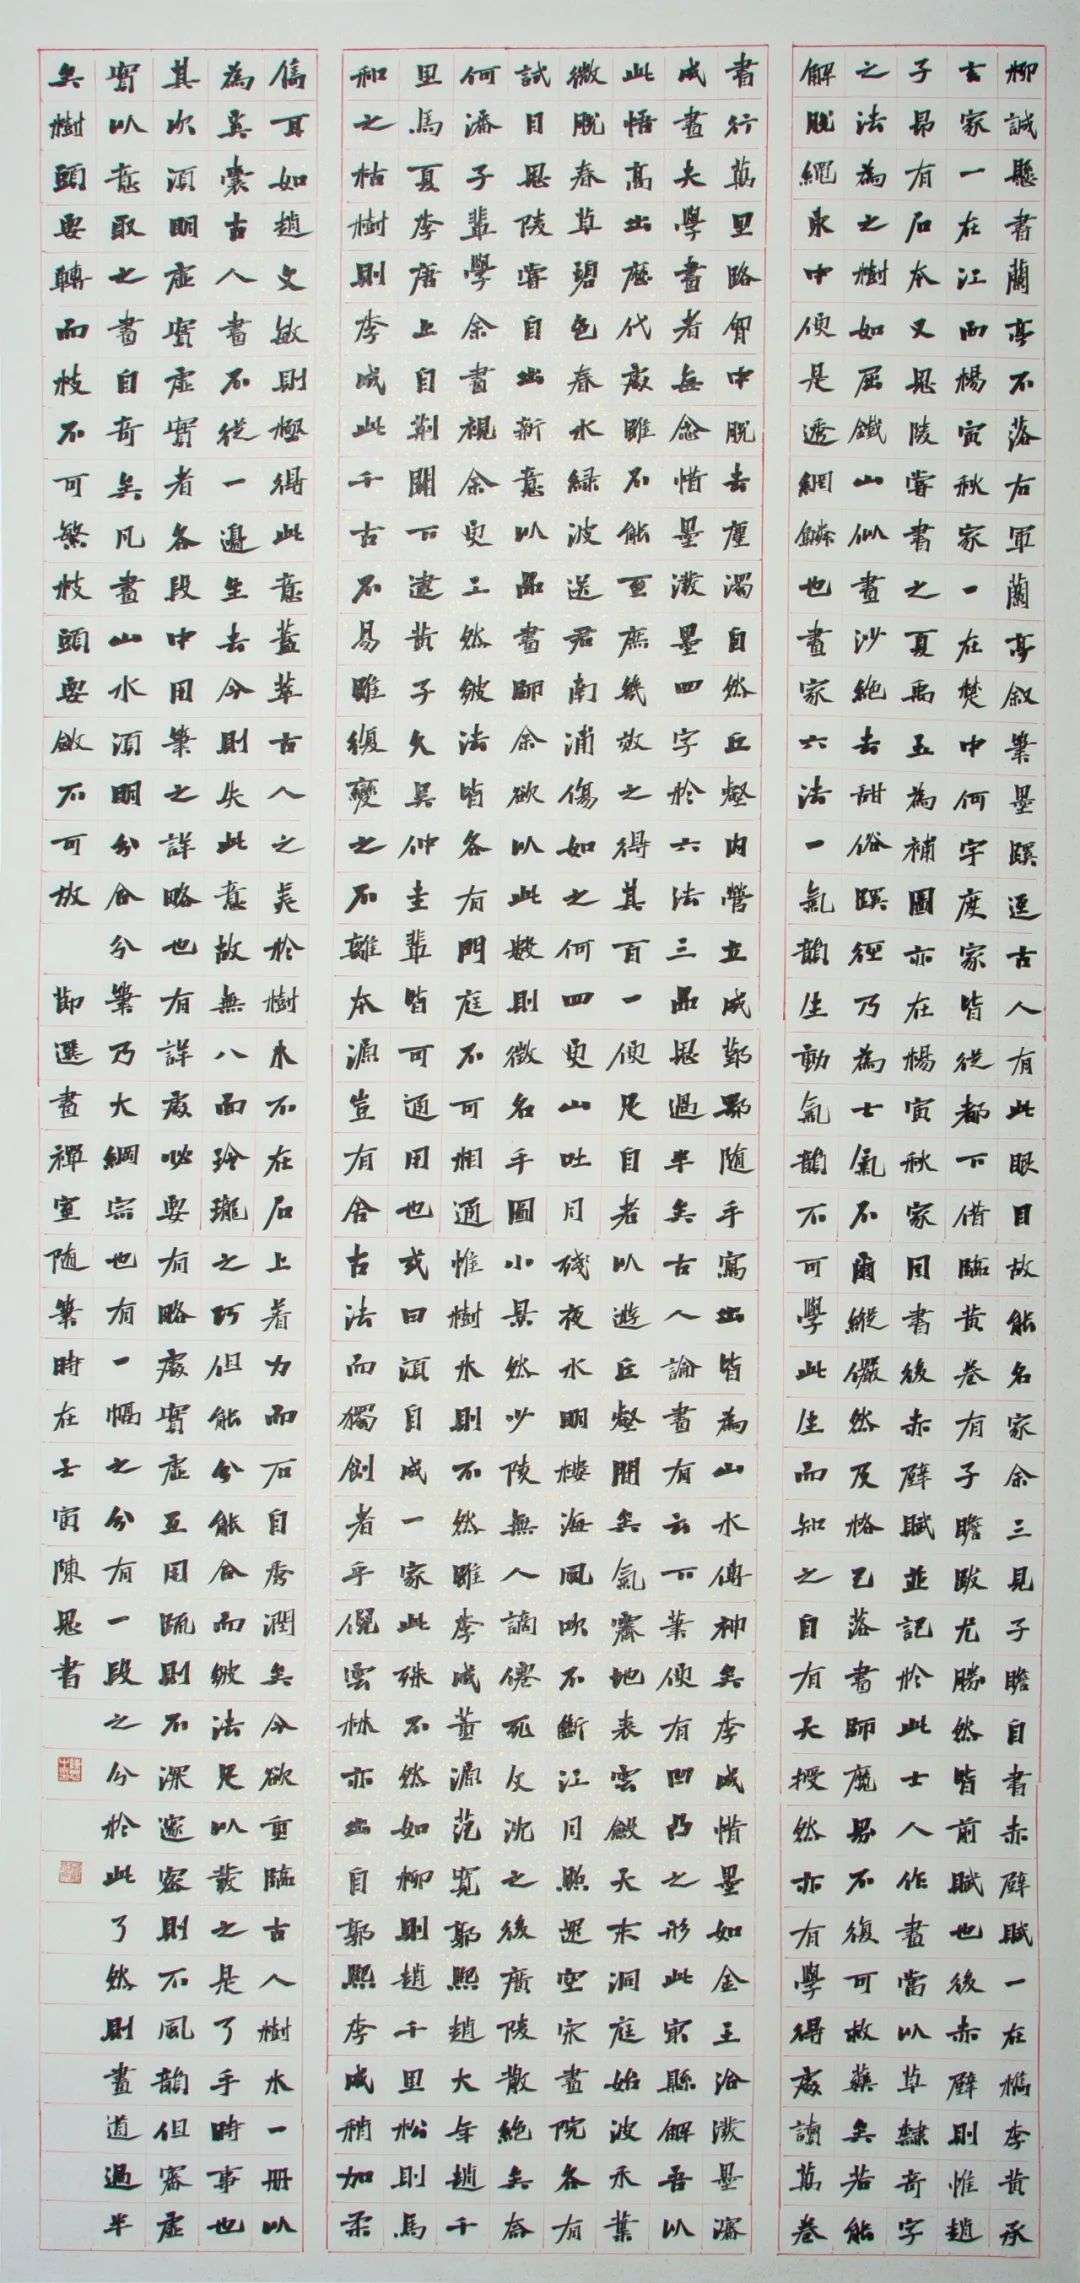 柳誠懸書蘭亭不落右軍蘭亭敘筆墨蹊逕古人有此眼目故能名家余三見子瞻自書赤壁賦一在檇李黃承
玄家一在江西楊寅秋家一在楚中何宇度家皆從都下借臨黃卷有子瞻跋尤勝然皆前賦也後赤壁則惟趙
子昂有石本又思陵嘗書之夏禹玉為補圖亦在楊寅秋家因書後赤壁賦並記於此士人作畫當以草隸奇字
之法為之樹如屈鐵山似畫沙絕去甜俗蹊徑乃為士氣不爾縱儼然及格已落書師魔界不復可救藥矣若能
解脫繩束中便是透網鱗也畫家六法一氣韻生動氣韻不可學此生而知之自有天授然亦有學得處讀萬卷
書行萬里路胸中脫去塵濁自然丘壑內營立成鄞鄂隨手寫出皆為山水傳神矣李成惜墨如金王洽潑墨瀋
成畫夫學畫者每念惜墨潑墨四字於六法三品思過半矣古人論畫有云下筆便有凹凸之形此最懸解吾以
此悟高出歷代處雖不能至庶幾效之得其百一便足自老以遊丘壑間矣氣霽地表雲斂天末洞庭始波木葉
微脫春草碧色春水綠波送君南浦傷如之何四更山吐月殘夜水明樓海風吹不斷江月照還空宋畫院各有
試目思陵嘗自出新意以品畫師余欲以此數則徵名手圖小景然少陵無人謫僊死文沈之後廣陵散絕矣奈
何潘子輩學余畫視余更工然皴法皆各有門庭不可相通惟樹木則不然雖李成董源范寬郭熙趙大年趙千
里馬夏李唐上自荊關下逮黃子久吳仲圭輩皆可通用也或曰須自成一家此殊不然如柳則趙千里松則馬
和之枯樹則李成此千古不易雖復變之不離本源豈有舍古法而獨創者乎倪雲林亦出自郭熙李成稍加柔
雋耳如趙文敏則極得此意蓋萃古人之美於樹木不在石上着力而石自秀潤矣今欲重臨古人樹木一冊以
為奚囊古人畫不從一邊生去今則失此意故無八面玲瓏之巧但能分能合而皴法足以發之是了手時事也
其次須明虛實虛實者各段中用筆之詳略也有詳處必要有略處實虛互用疏則不深邃密則不風韻但審虛
實以意取之畫自奇矣凡畫山水須明分合分筆乃大綱宗也有一幅之分有一段之分於此了然則畫道過半
矣樹頭要轉而枝不可繁枝頭要斂不可放 節選畫禪室隨筆時在壬寅陳思書